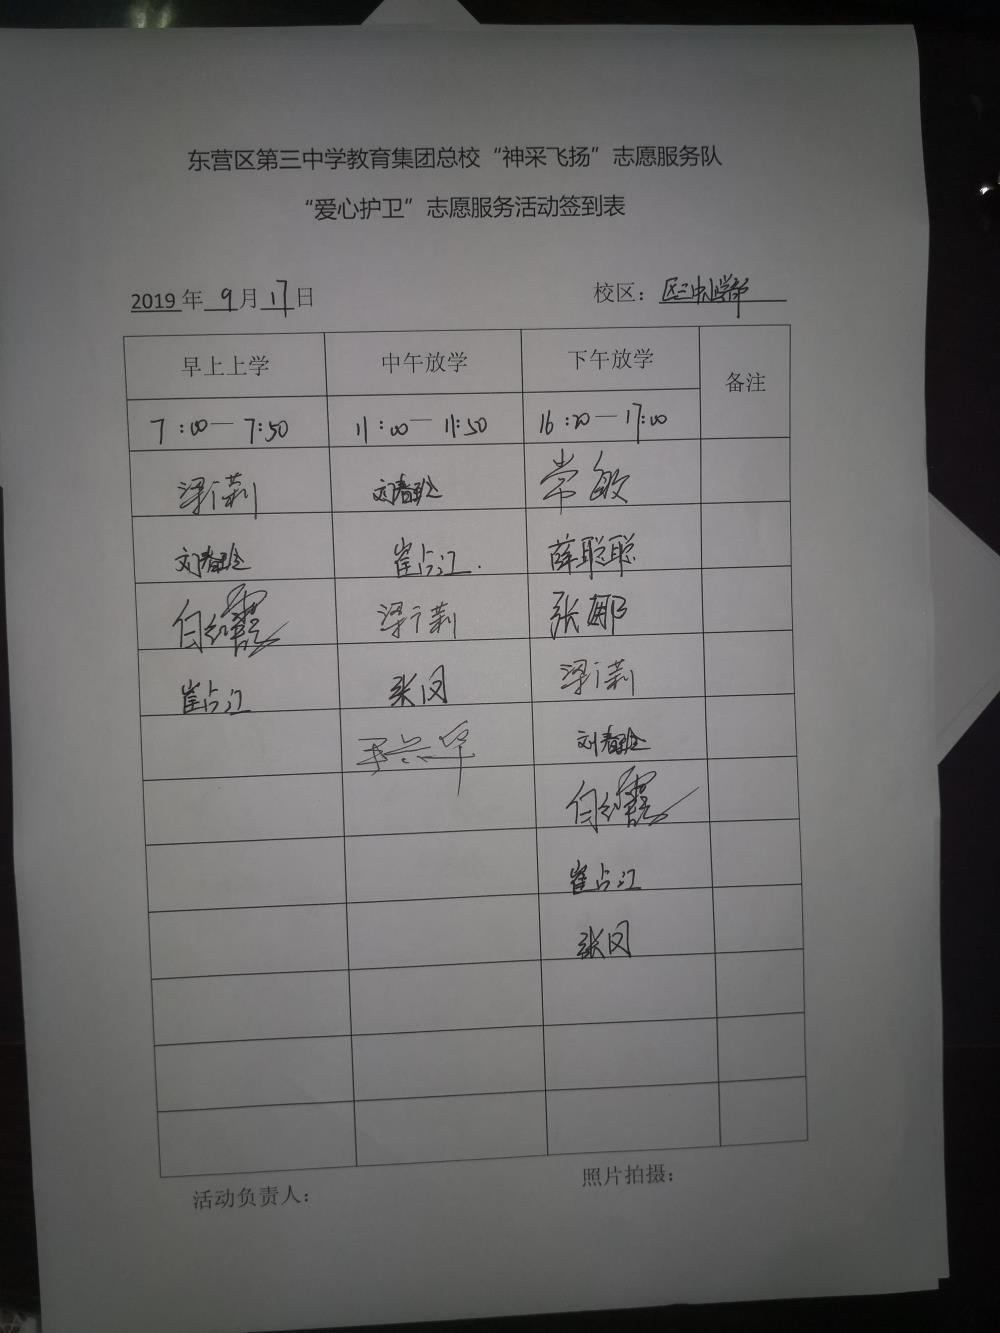 东营区第三中学教育集团总校“神采飞扬”志愿服务队
“爱心护卫”志愿服务活动签到表
2019年 9月17日 校区：区三中小学部
早上上学 中午放学 下午放学 备注
7:00—7:50 11:00—11:50 16:20—17:00
梁广莉 刘春玲 常敏
刘春玲 崔占江. 薛聪聪
白红霞 梁广莉 张娜
崔占江 张凤 梁广莉
刘春玲
白红霞
崔占江
张凤
活动负责人： 照片拍摄：